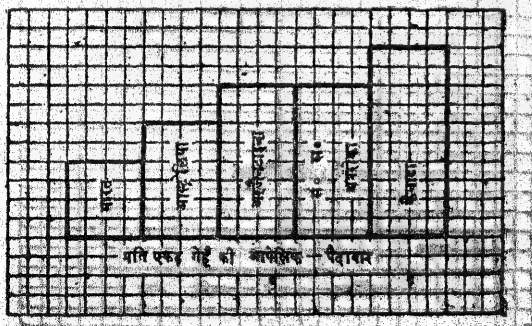 भारत
आस्ट्रेलिया
अर्जेनटाइना
सं० रा०
अमरीका
कैनाडा
प्रति एकड़ गेहूँ की आपेक्षिक पैदावार